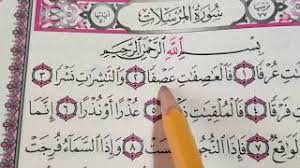 سُورَةُ الْمُرْسَلَاتِ
بِسْمِ اللَّهِ الرَّحْمَٰنِ الرَّحِيمِ
عُرْفًا ١ فَالْعَٰصِفَٰتِ عَصْفًا ٢ وَالنَّٰشِرَٰتِ نَشْرًا ٣
٤ فَالْمُلْقِيَٰتِ ٥ عُذْرًا أَوْ نُذْرًا ٦ إِنَّمَا
٧ فَإِذَا وَإِذَا السَّمَاءُ فُرِجَتْ